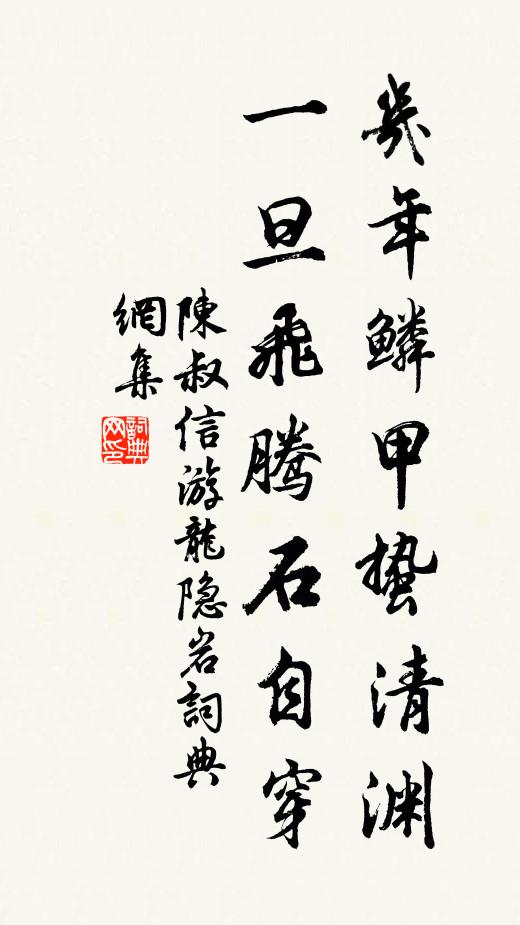 幾年鱗甲蟄清渊
一旦飛騰石自穿
陳叔信游龍隐岩詞典
網集
詞典网印